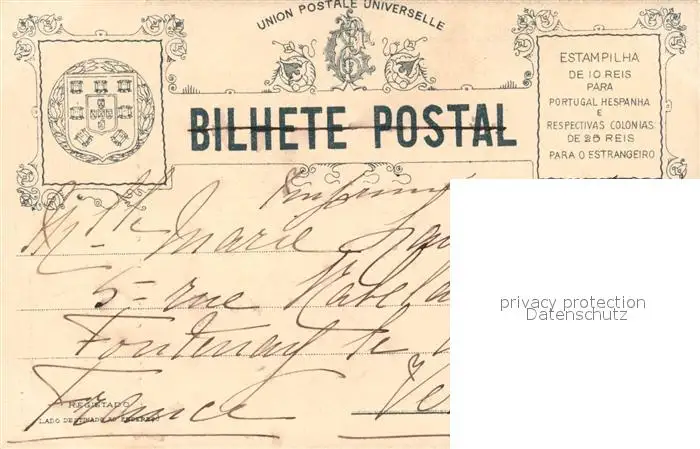 UNION POSTALE UNIVERSELLE
BILHETE POSTAL
ESTAMPILHA
DE 10 REIS
PARA
PORTUGAL HESPANHA
E
RESPECTIVAS COLONIAS
DE 25 REIS
PARA O ESTRANGEIRO
Mlle Marie
5 rue Rabela
Fontenay le
France Ve
REGISTADO
LADO DESTINADO AO ENDEREÇO
privacy protection
Datenschutz